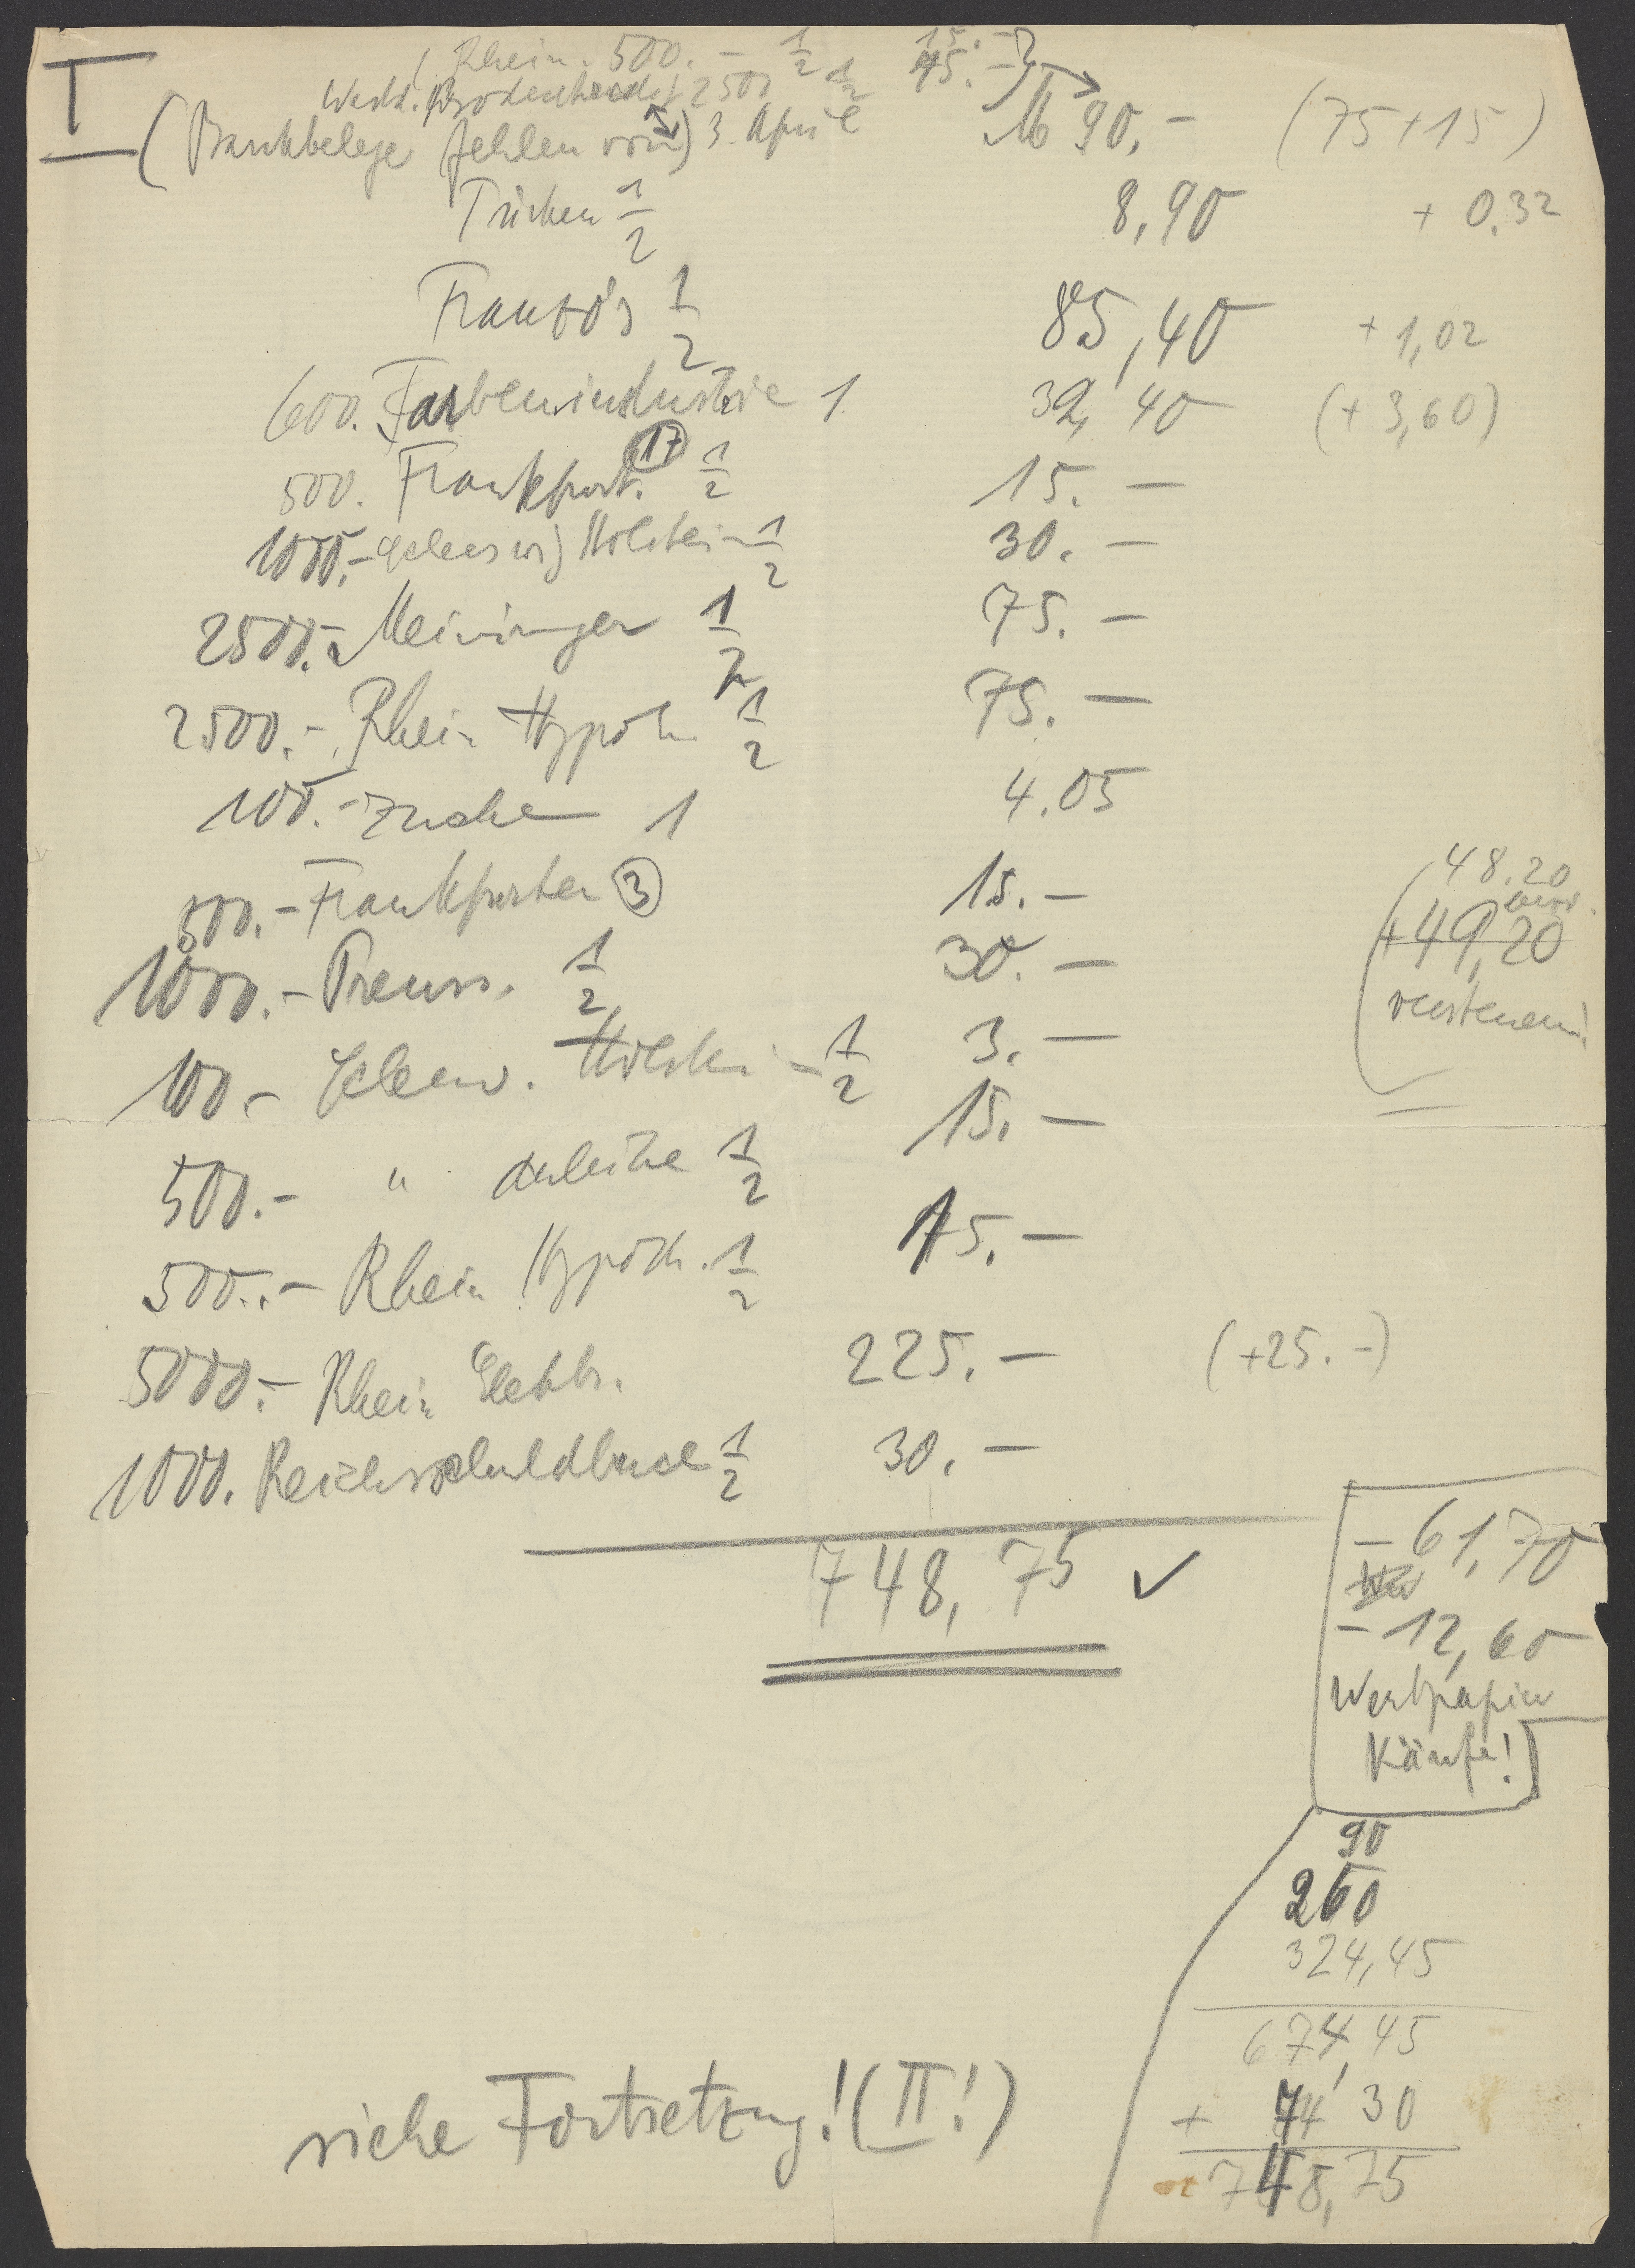 I
Rhein. 500.- 1/2 15.-
2500 1/2 75.-
(Bankbelege fehlen von) 3. April M 90.- (75+15)
Türken 1/2 8,90 + 0,32
Französ 1/2 85,40 + 1,02
600. Farbenindustrie 1 32,40 (+3,60)
500. Frankfurt. 17 1/2 15.-
1000.- Schleswig Holstein 1/2 30.-
2500.- Meininger 1/2 75.-
2500.- Rhein Hypoth 1/2 75.-
100.- Zucker 1 4.05
500.- Frankfurter 3 15.-
1000.- Preuss. 1/2 30.-
100.- Schlesw. Holstein 1/2 3.-
500.- " Anleihe 1/2 15.-
500.- Rhein Hypoth. 1/2 15.-
5000.- Rhein Elektr. 225.- (+25.-)
1000. Reichsschuldbuch 1/2 30.-
748,75 ✓
48.20
+49,20
versteuern!
- 61,70
- 12,60
Wertpapier
Käufe!
90
260
324,45
674,45
+ 74,30
748,75
siehe Fortsetzung! (II!)